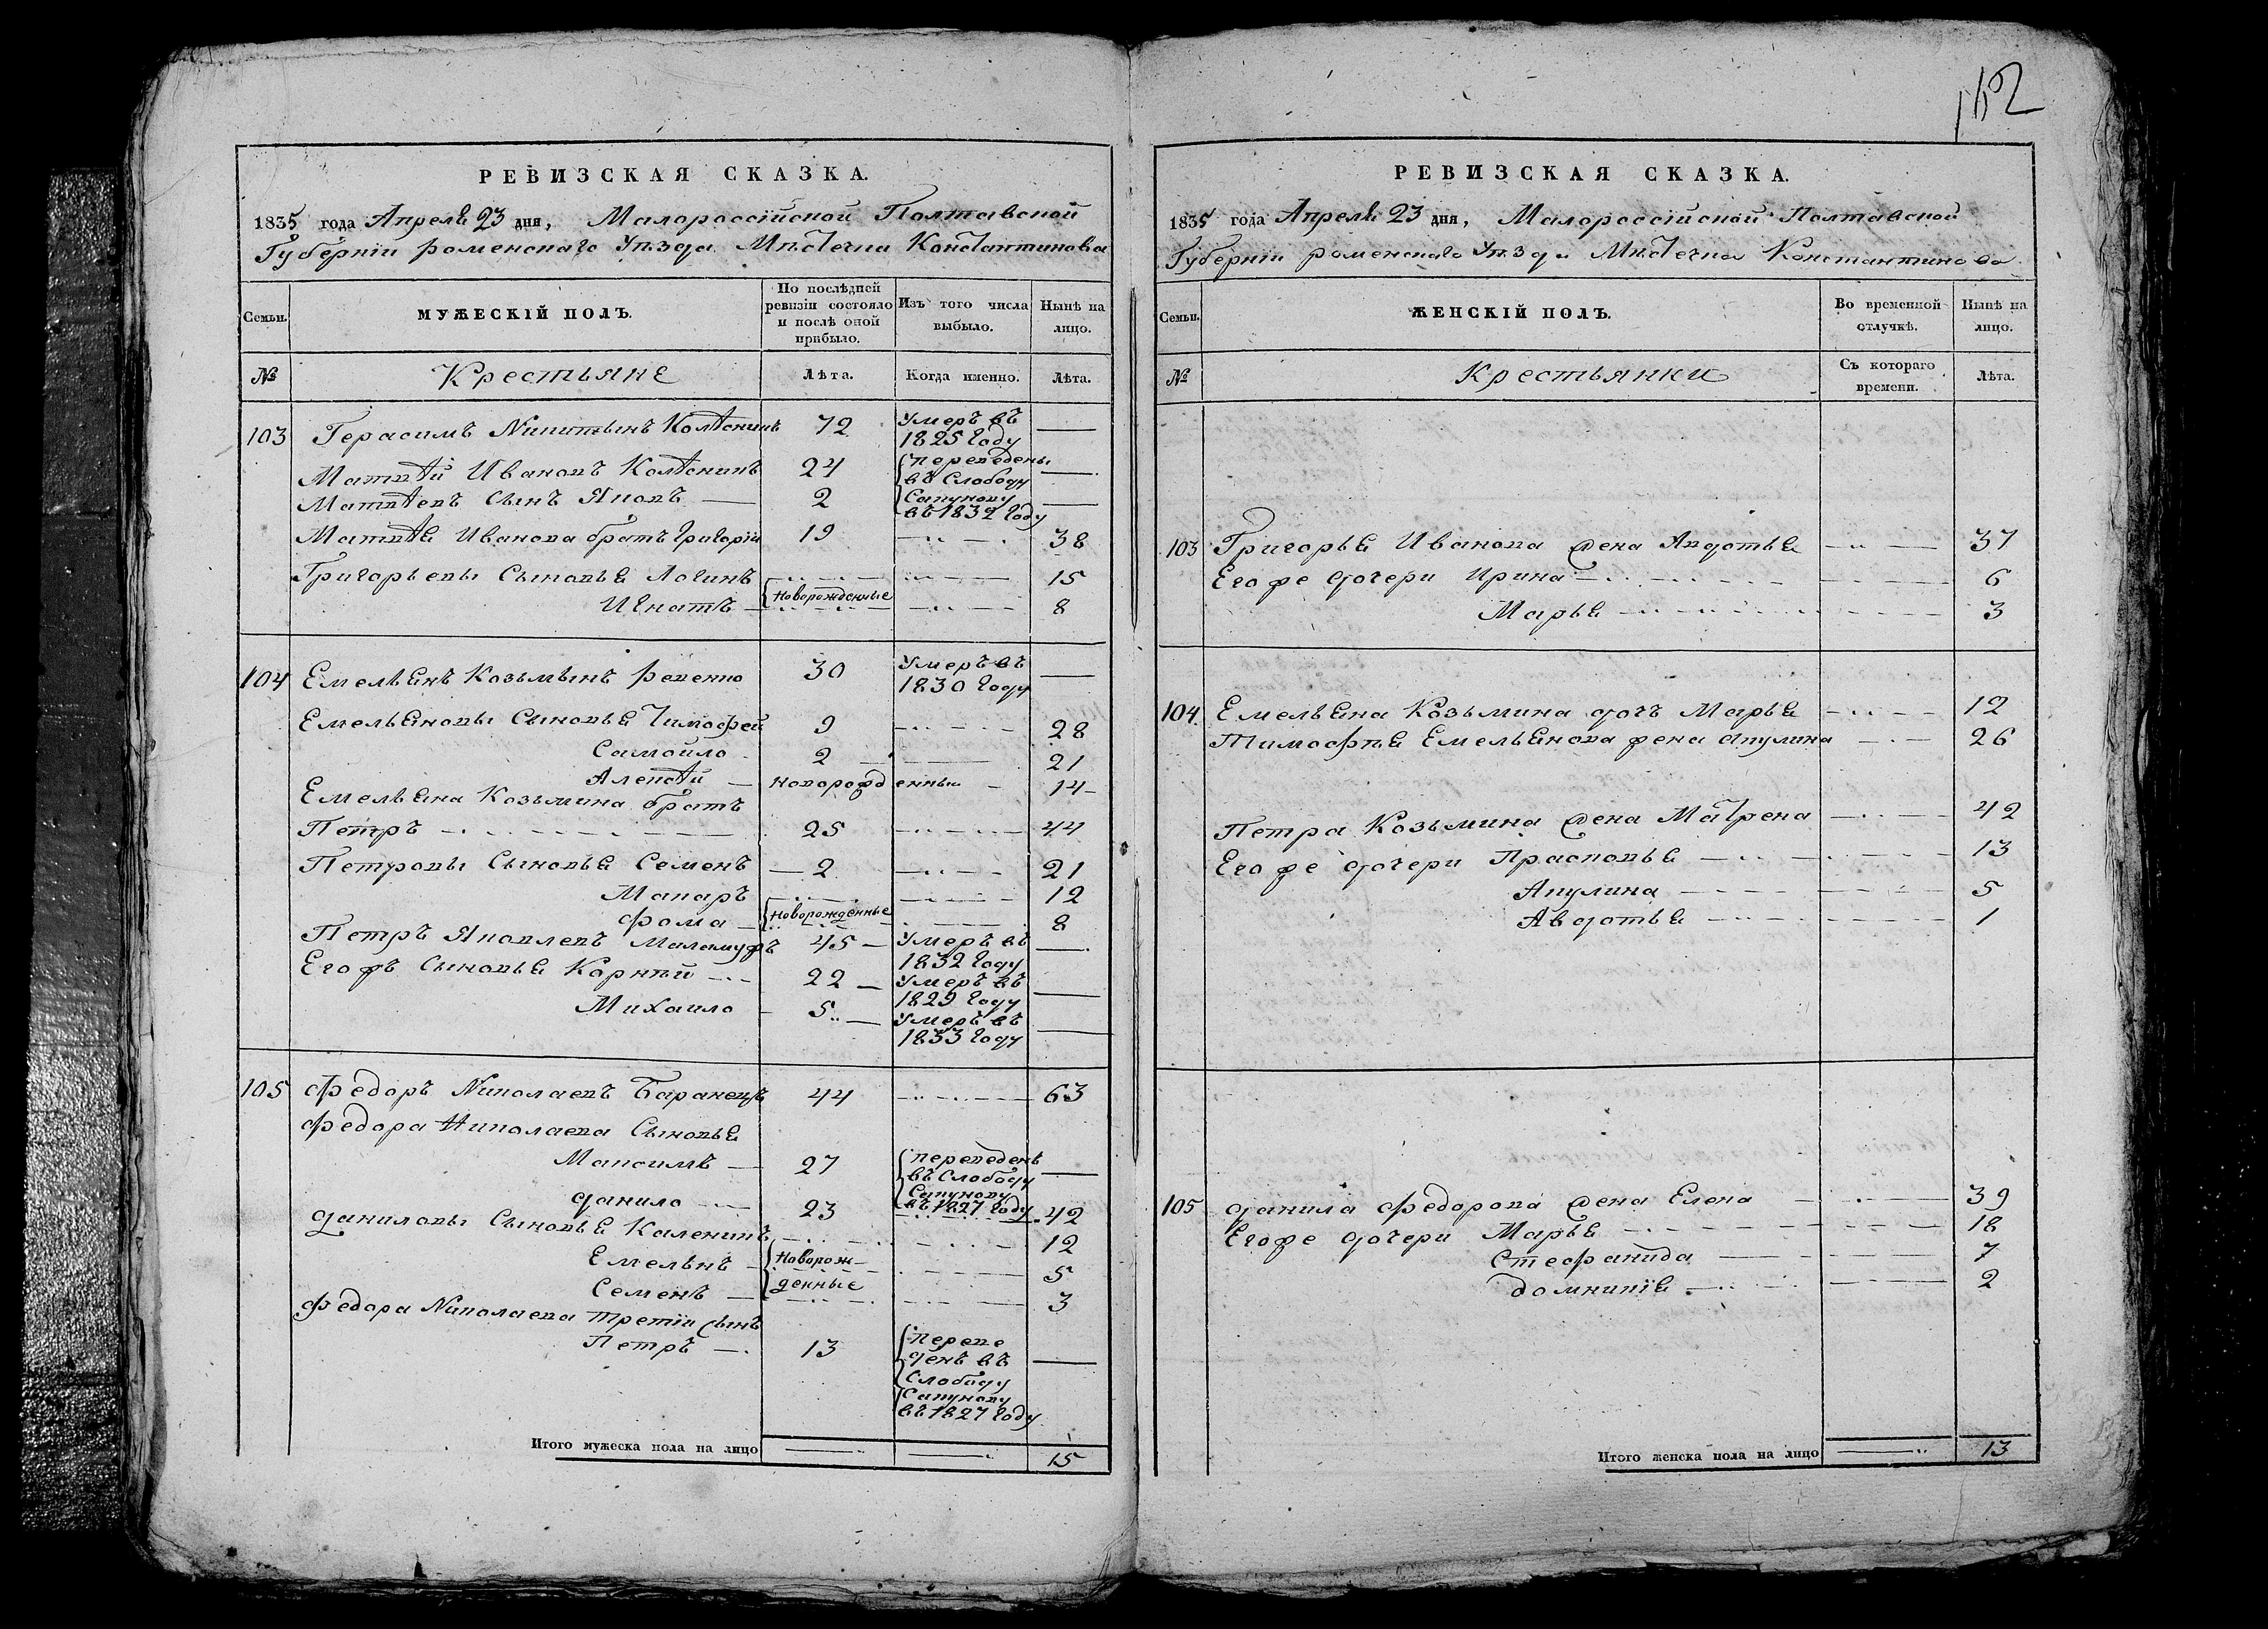 152
РЕВИЗСКАЯ СКАЗКА.
1835 года Апреля 23 дня, Малороссійской Полтавской
Губерніи роменскаго Уѣзда Мѣстечка Константинова
Семьи.
МУЖЕСКІЙ ПОЛЪ.
По послѣдней ревизіи состояло и послѣ оной прибыло.
Изъ того числа выбыло.
Нынѣ на лицо.
№ Крестьяне Лѣта. Когда именно. Лѣта.
103 Герасимъ Никитынъ Колѣсникъ 72 Умеръ въ 1825 году
Матвѣй Ивановъ Колѣсникъ 24 переведены
Матвѣевъ Сынъ Яковъ 2 въ Слободу Сапунову въ 1832 году
Матвѣя Иванова братъ Григорій 19 38
Григорьевы Сыновья Логинъ 15
Игнатъ Новорожденные 8
104 Емельянъ Козьмынъ репенко 30 Умеръ въ 1830 году
Емельяновы Сыновья Тимофей 9 28
Самойло 2 21
Алексѣй новорожденный 14
Емельяна Козьмина братъ
Петръ 25 44
Петровы Сыновья Семенъ 2 21
Макаръ 12
Фома Новорожденные 8
Петръ Яковлевъ Маламужъ 45 Умеръ въ 1832 году
Егожъ Сыновья Корнѣй 22 Умеръ въ 1829 году
Михаило 5 Умеръ въ 1833 году
105 Федоръ Николаевъ Баранецъ 44 63
Федора Николаева Сыновья
Максимъ 27 переведенъ въ Слободу Сапунову въ 1827 году
данило 23 42
даниловы Сыновья Каленикъ 12
Емельнъ Новорож- 5
Семенъ денные 3
Федора Николаева третій сынъ
Петръ 13 переведенъ въ Слободу Сапунову въ 1827 году
Итого мужеска пола на лицо 15
РЕВИЗСКАЯ СКАЗКА.
1835 года Апреля 23 дня, Малороссійской Полтавской
Губерніи роменскаго Уѣзда Мѣстечка Константинова
Семьи.
ЖЕНСКІЙ ПОЛЪ.
Во временной отлучкѣ.
Нынѣ на лицо.
№ Крестьянки Съ котораго времени. Лѣта.
103 Григорья Иванова жена Авдотья 37
Егоже дочери Ирина 6
Марья 3
104 Емельяна Козьмина дочь Марья 12
Тимофѣя Емельянова жена Акулина 26
Петра Козьмина жена Матрена 42
Егоже дочери Прасковья 13
Акулина 5
Авдотья 1
105 данила Федорова жена Елена 39
Егоже дочери Марья 18
Стефанида 7
домникія 2
Итого женска пола на лицо 13